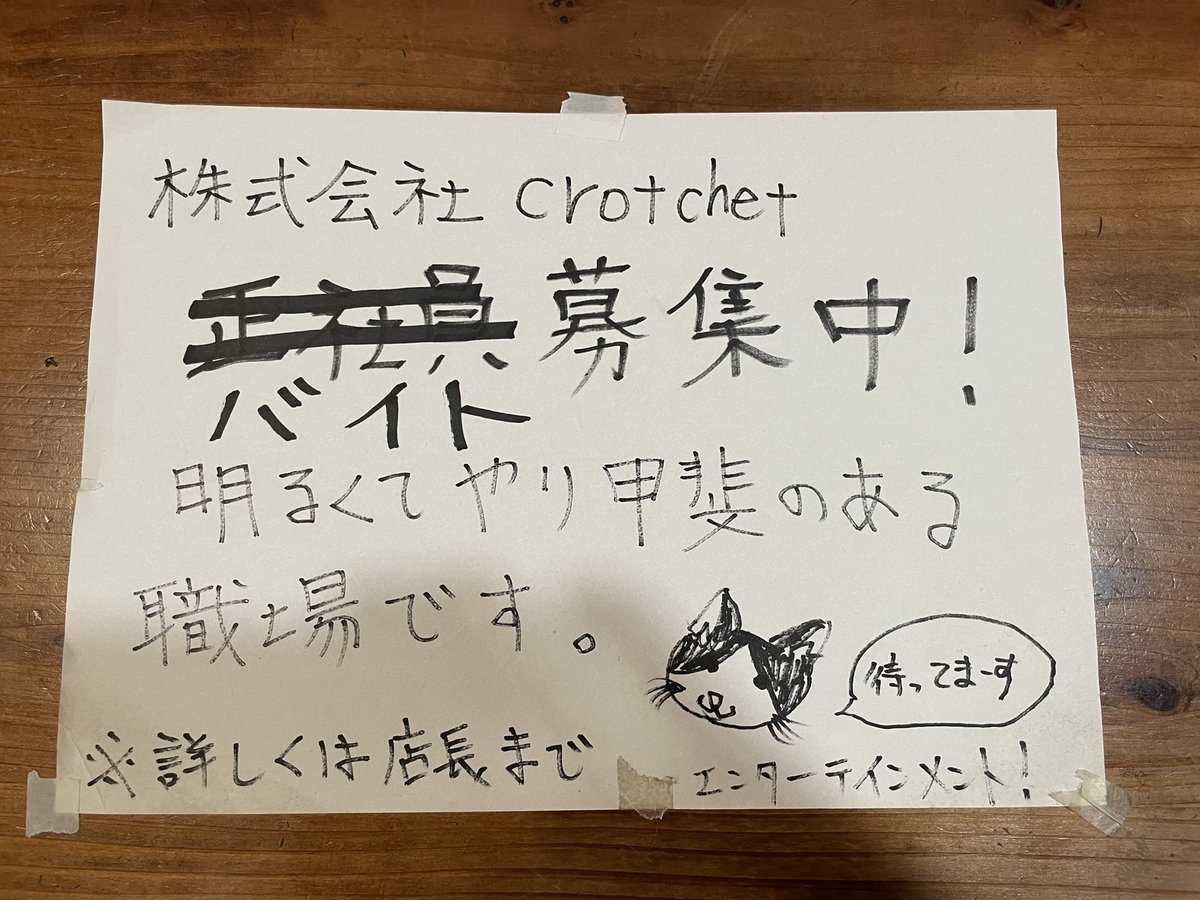 株式会社 crotchet
正社員 募集中！
バイト
明るくてやり甲斐のある
職場です。
待ってまーす
※詳しくは店長まで
エンターテインメント！